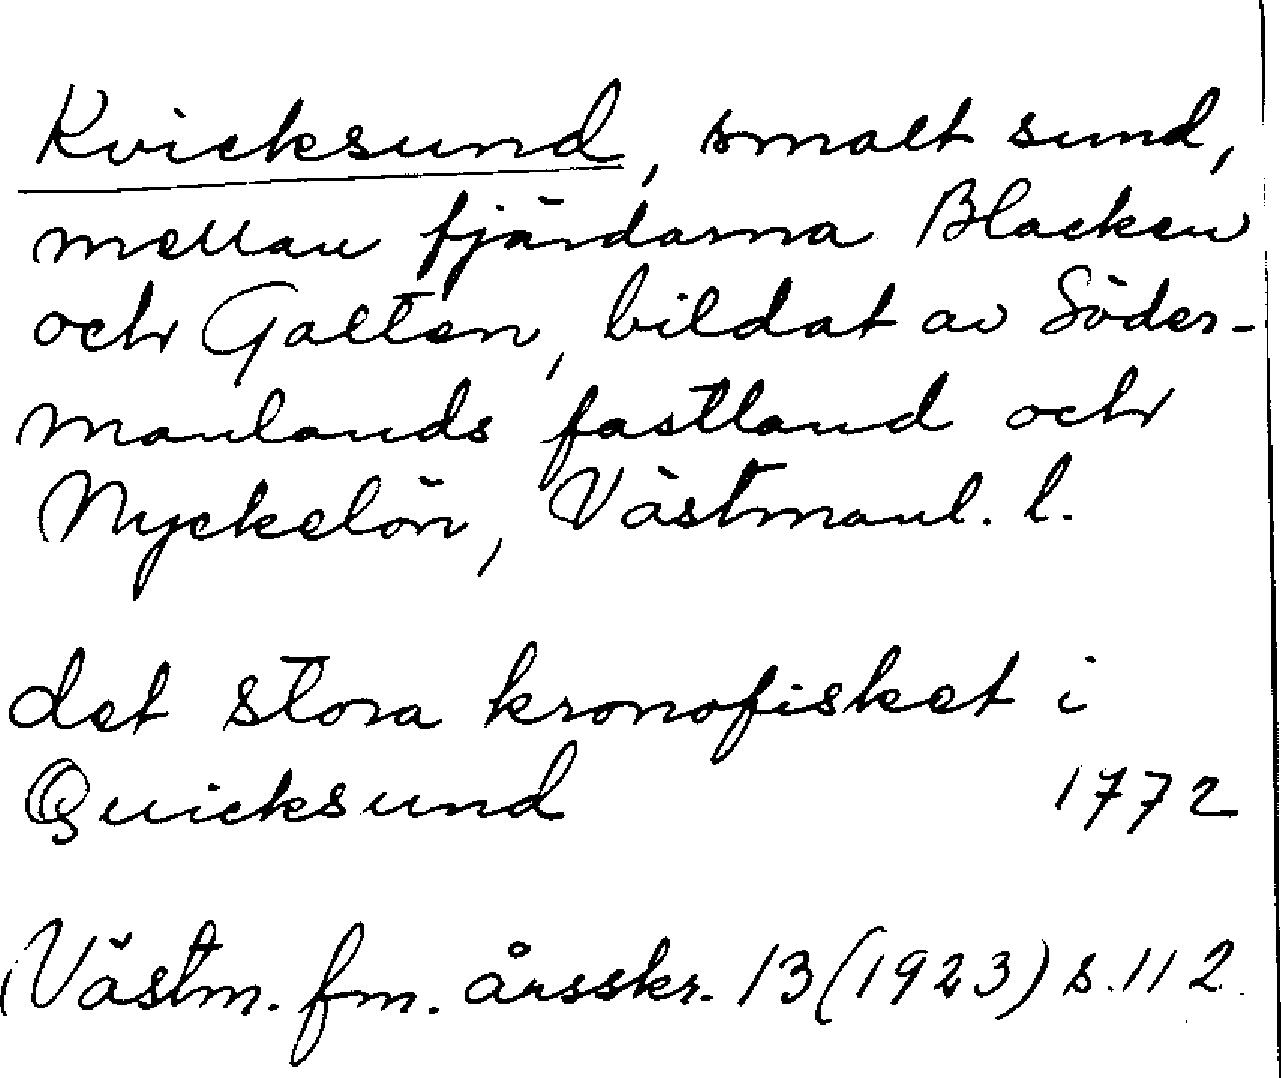 Kvicksund, smalt sund,
mellan fjärdarna Blacken
och Galten, bildat av Söder-
manlands fastland och
Nyckelön, Västmanl. l.
det stora kronofisket i
Quicksund 1772
Västm. fm. årsskr. 13 (1923) s. 112.